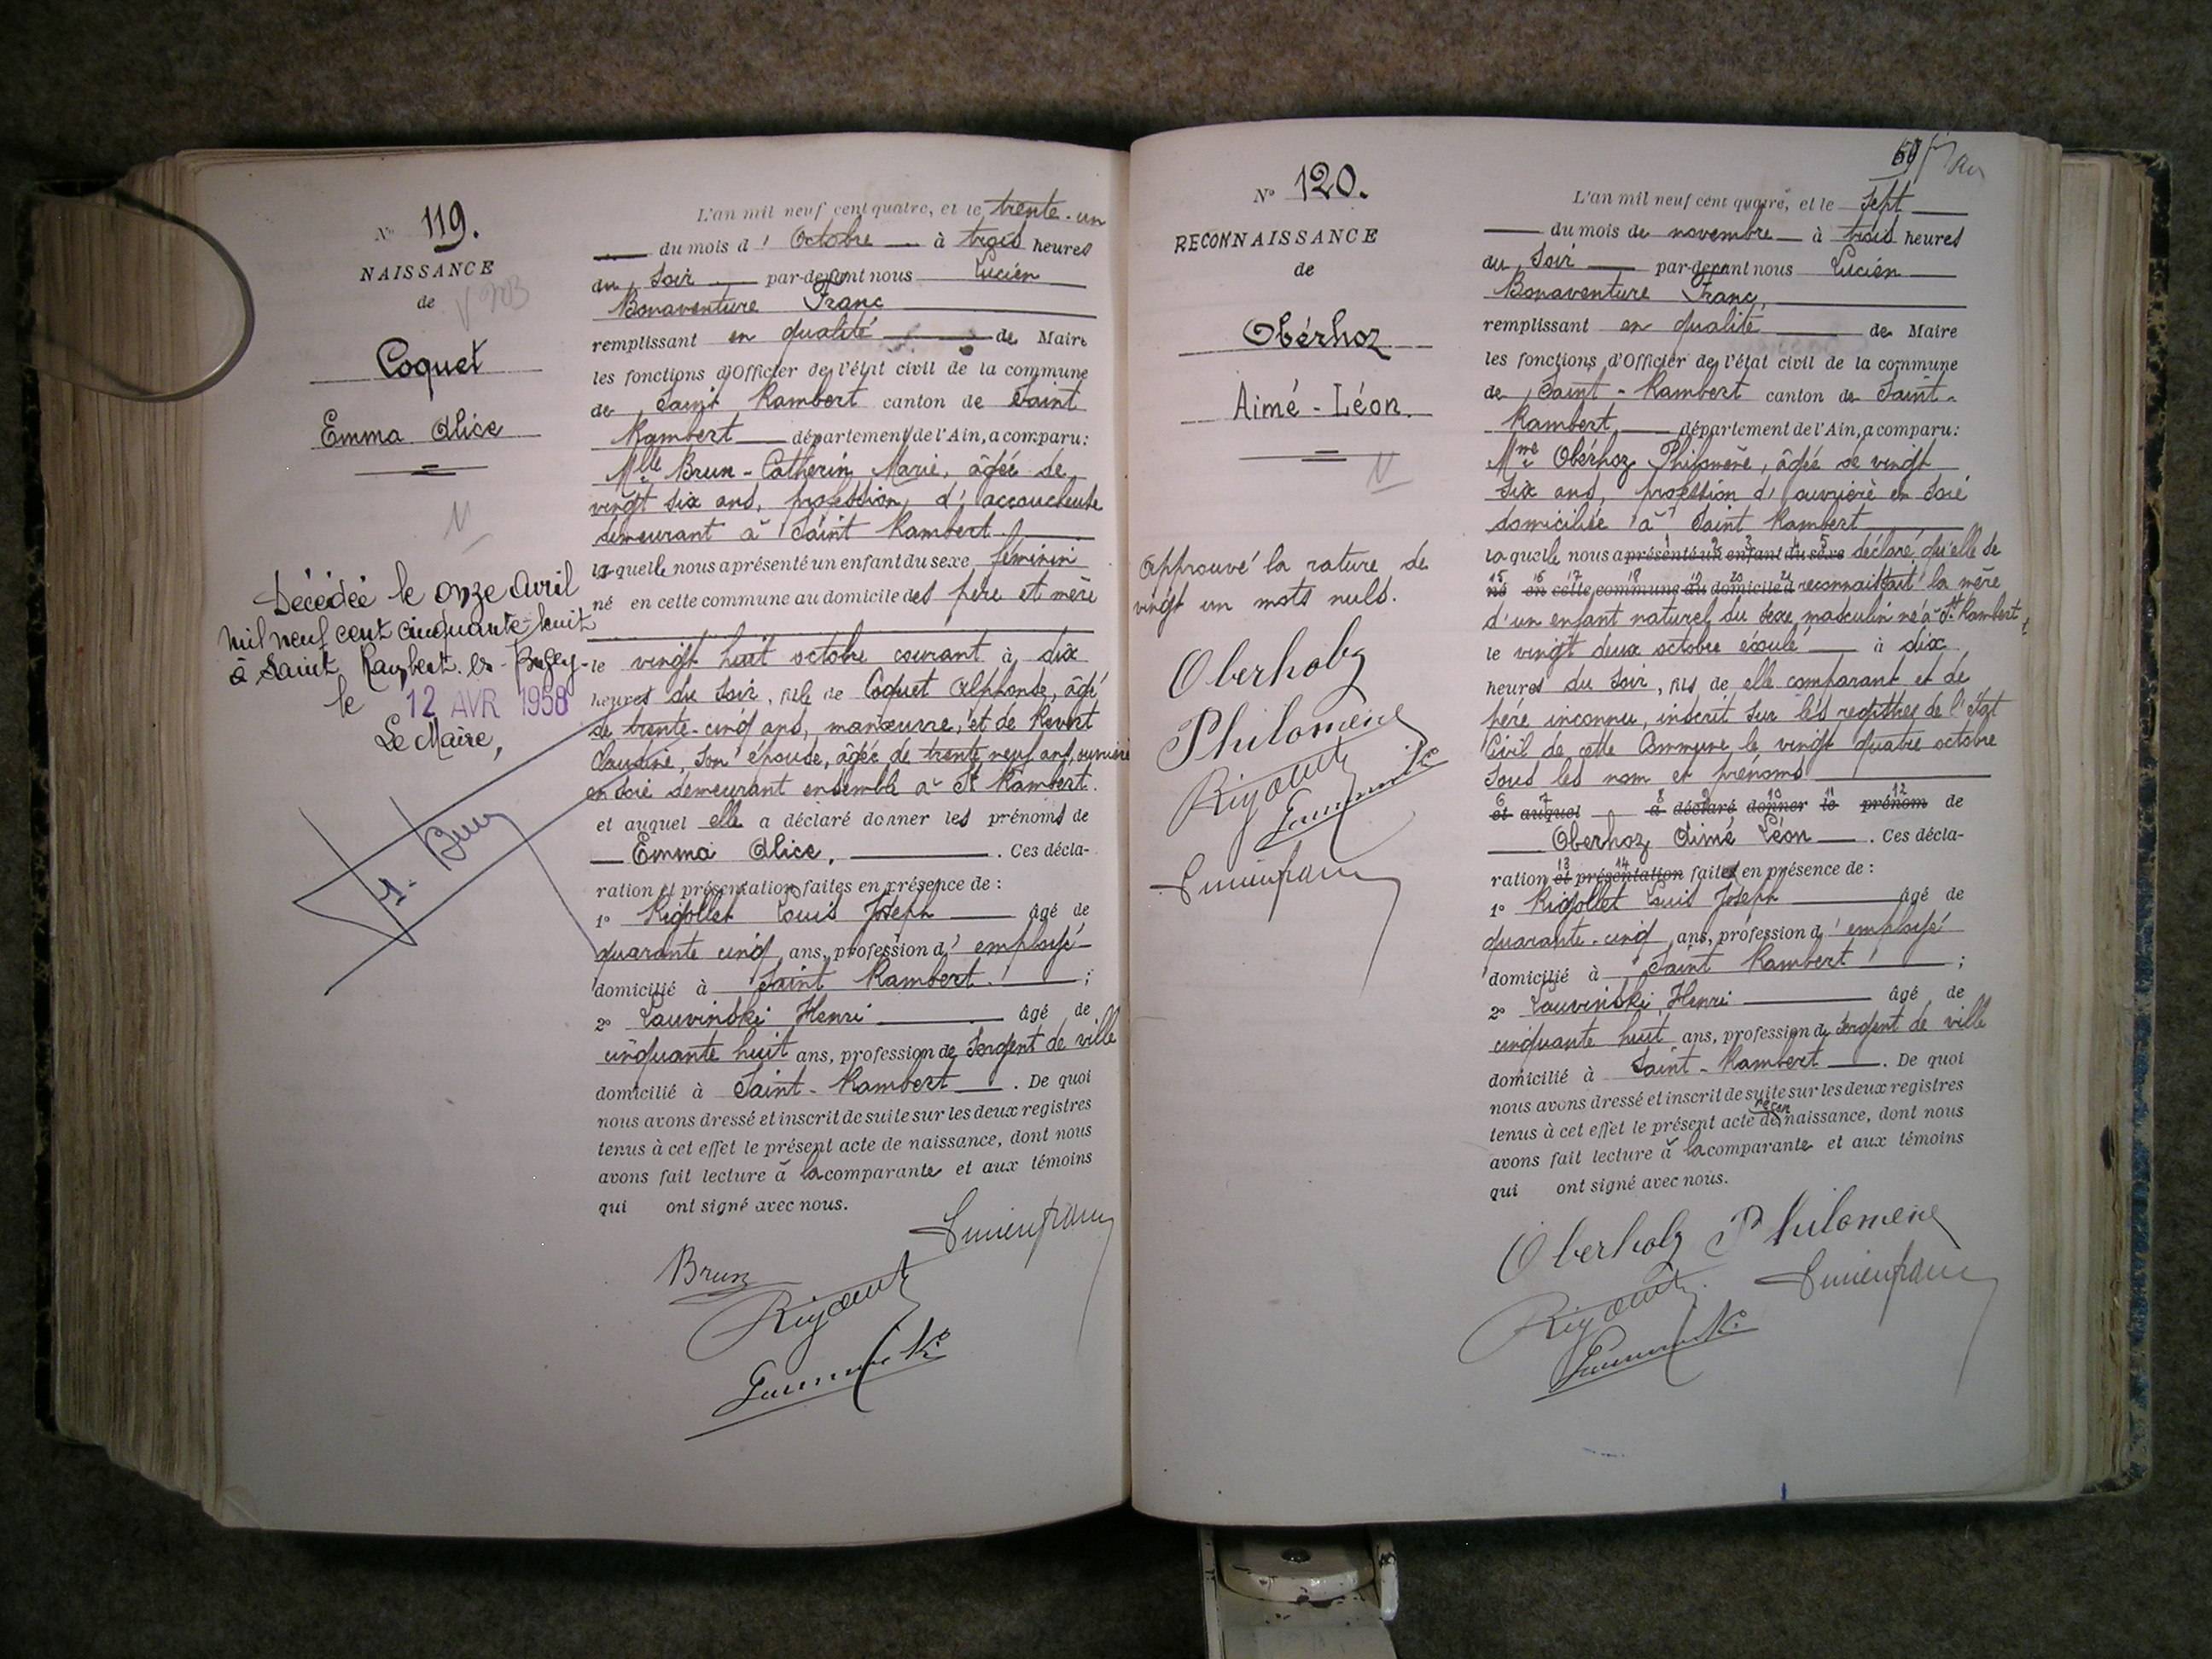 N° 119.
NAISSANCE
de
Coquet
Emma Alice
Décédée le onze Avril
mil neuf cent cinquante-huit
à Saint Rambert-en-Bugey
le 12 AVR 1958
Le Maire,
L'an mil neuf cent quatre, et le trente-un
du mois d' Octobre à trois heures
du Soir par-devant nous Lucien
Bonaventure Franc
remplissant en qualité de Maire
les fonctions d'Officier de l'état civil de la commune
de Saint Rambert canton de Saint
Rambert département de l'Ain, a comparu:
Mlle Brun-Catherin Marie, âgée de
vingt six ans, profession d'accoucheuse
demeurant à Saint Rambert
laquelle nous a présenté un enfant du sexe féminin
né en cette commune au domicile des père et mère
le vingt huit octobre courant à dix
heures du soir, fille de Coquet Alphonse, âgé
de trente-cinq ans, manœuvre, et de Revert
Claudine, son épouse, âgée de trente neuf ans, ouvrière
en soie demeurant ensemble à St Rambert.
et auquel elle a déclaré donner les prénoms de
Emma Alice. Ces décla-
ration et présentation faites en présence de :
1° Rigollet Louis Joseph âgé de
quarante cinq ans, profession d'employé
domicilié à Saint Rambert ;
2° Lauvinski Henri âgé de
cinquante huit ans, profession de Sergent de ville
domicilié à Saint-Rambert. De quoi
nous avons dressé et inscrit de suite sur les deux registres
tenus à cet effet le présent acte de naissance, dont nous
avons fait lecture à la comparante et aux témoins
qui ont signé avec nous.
Brun
Lucien franc
N° 120.
RECONNAISSANCE
de
Obérhoz
Aimé-Léon.
Approuvé la rature de
vingt un mots nuls.
Oberholz
Philomène
Lucien franc
L'an mil neuf cent quatre, et le Sept
du mois de novembre à trois heures
du Soir par-devant nous Lucien
Bonaventure Franc,
remplissant en qualité de Maire
les fonctions d'Officier de l'état civil de la commune
de Saint-Rambert canton de Saint-
Rambert, département de l'Ain, a comparu:
Mme Obérhoz Philomène, âgée de vingt
six ans, profession d'ouvrière en soie
domiciliée à Saint Rambert
laquelle nous a présenté un enfant du sexe déclaré qu'elle se
né en cette commune au domicile d reconnaissait la mère
d'un enfant naturel du sexe masculin né à St Rambert
le vingt deux octobre écoulé à dix
heures du soir, fils de elle comparant et de
père inconnu, inscrit sur les registres de l'état
Civil de cette Commune le vingt quatre octobre
sous les nom et prénoms
et auquel a déclaré donner le prénom de
Oberhoz Aimé Léon. Ces décla-
ration et présentation faites en présence de :
1° Rigollet Louis Joseph âgé de
quarante-cinq ans, profession d'employé
domicilié à Saint Rambert ;
2° Lauvinski, Henri âgé de
cinquante huit ans, profession de Sergent de ville
domicilié à Saint-Rambert. De quoi
nous avons dressé et inscrit de suite sur les deux registres
tenus à cet effet le présent acte de naissance, dont nous
avons fait lecture à la comparante et aux témoins
qui ont signé avec nous.
Oberholz Philomène
Lucien franc